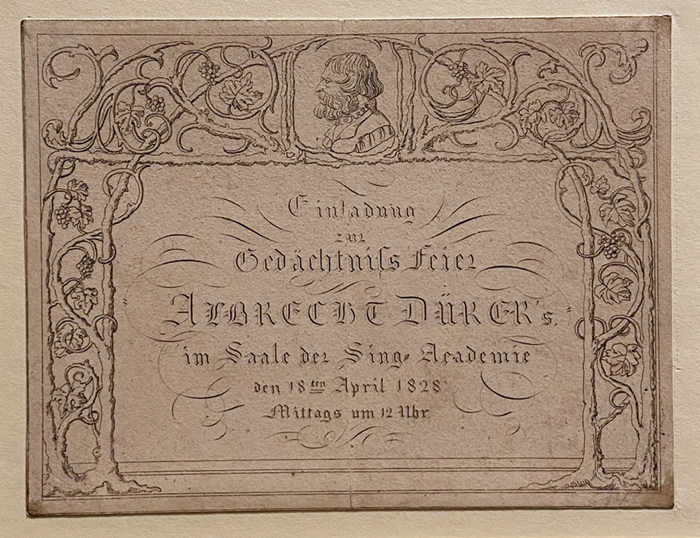 Einladung
zur
Gedächtniſs Feier
ALBRECHT DÜRER's.
im Saale der Sing-Academie
den 18ten April 1828
Mittags um 12 Uhr